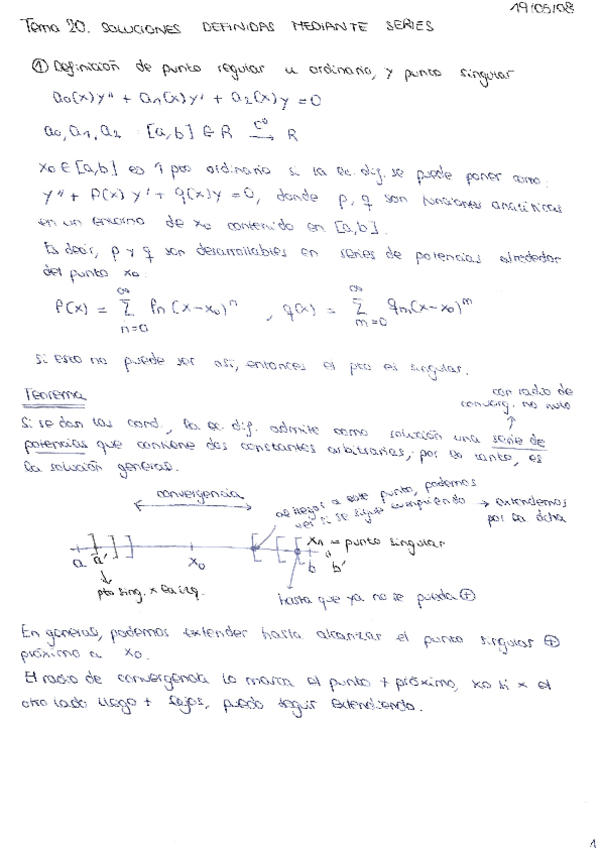 19/05/08
Tema 20. SOLUCIONES DEFINIDAS MEDIANTE SERIES
① Definición de punto regular u ordinario, y punto singular
a₀(x)y'' + a₁(x)y' + a₂(x)y = 0
a₀, a₁, a₂ : [a,b] ∈ R —C⁰→ R
x₀ ∈ [a,b] es 1 pto ordinario si la ec. dif. se puede poner como:
y'' + p(x)y' + q(x)y = 0, donde p, q son funciones analíticas
en un entorno de x₀ contenido en [a,b].
Es decir, p y q son desarrollables en series de potencias alrededor
del punto x₀:
p(x) = Σ_{n=0}^{∞} pₙ(x-x₀)ⁿ , q(x) = Σ_{m=0}^{∞} qₘ(x-x₀)ᵐ
Si esto no puede ser así, entonces el pto es singular.
con radio de
converg. no nulo
Teorema
Si se dan las cond., la ec. dif. admite como solución una serie de
potencias que contiene dos constantes arbitrarias, por lo tanto, es
la solución general.
convergencia
al llegar a este punto, podemos
ver si se sigue cumpliendo → extendemos
por la dcha
x₁ = punto singular
a a' x₀ b b'
pto sing. x la izq.
hasta que ya no se pueda ⊕
En general, podemos extender hasta alcanzar el punto singular ⊕
próximo a x₀.
El radio de convergencia lo marca el punto + próximo, xo si x el
otro lado llego + lejos, puedo seguir extendiendo.
1